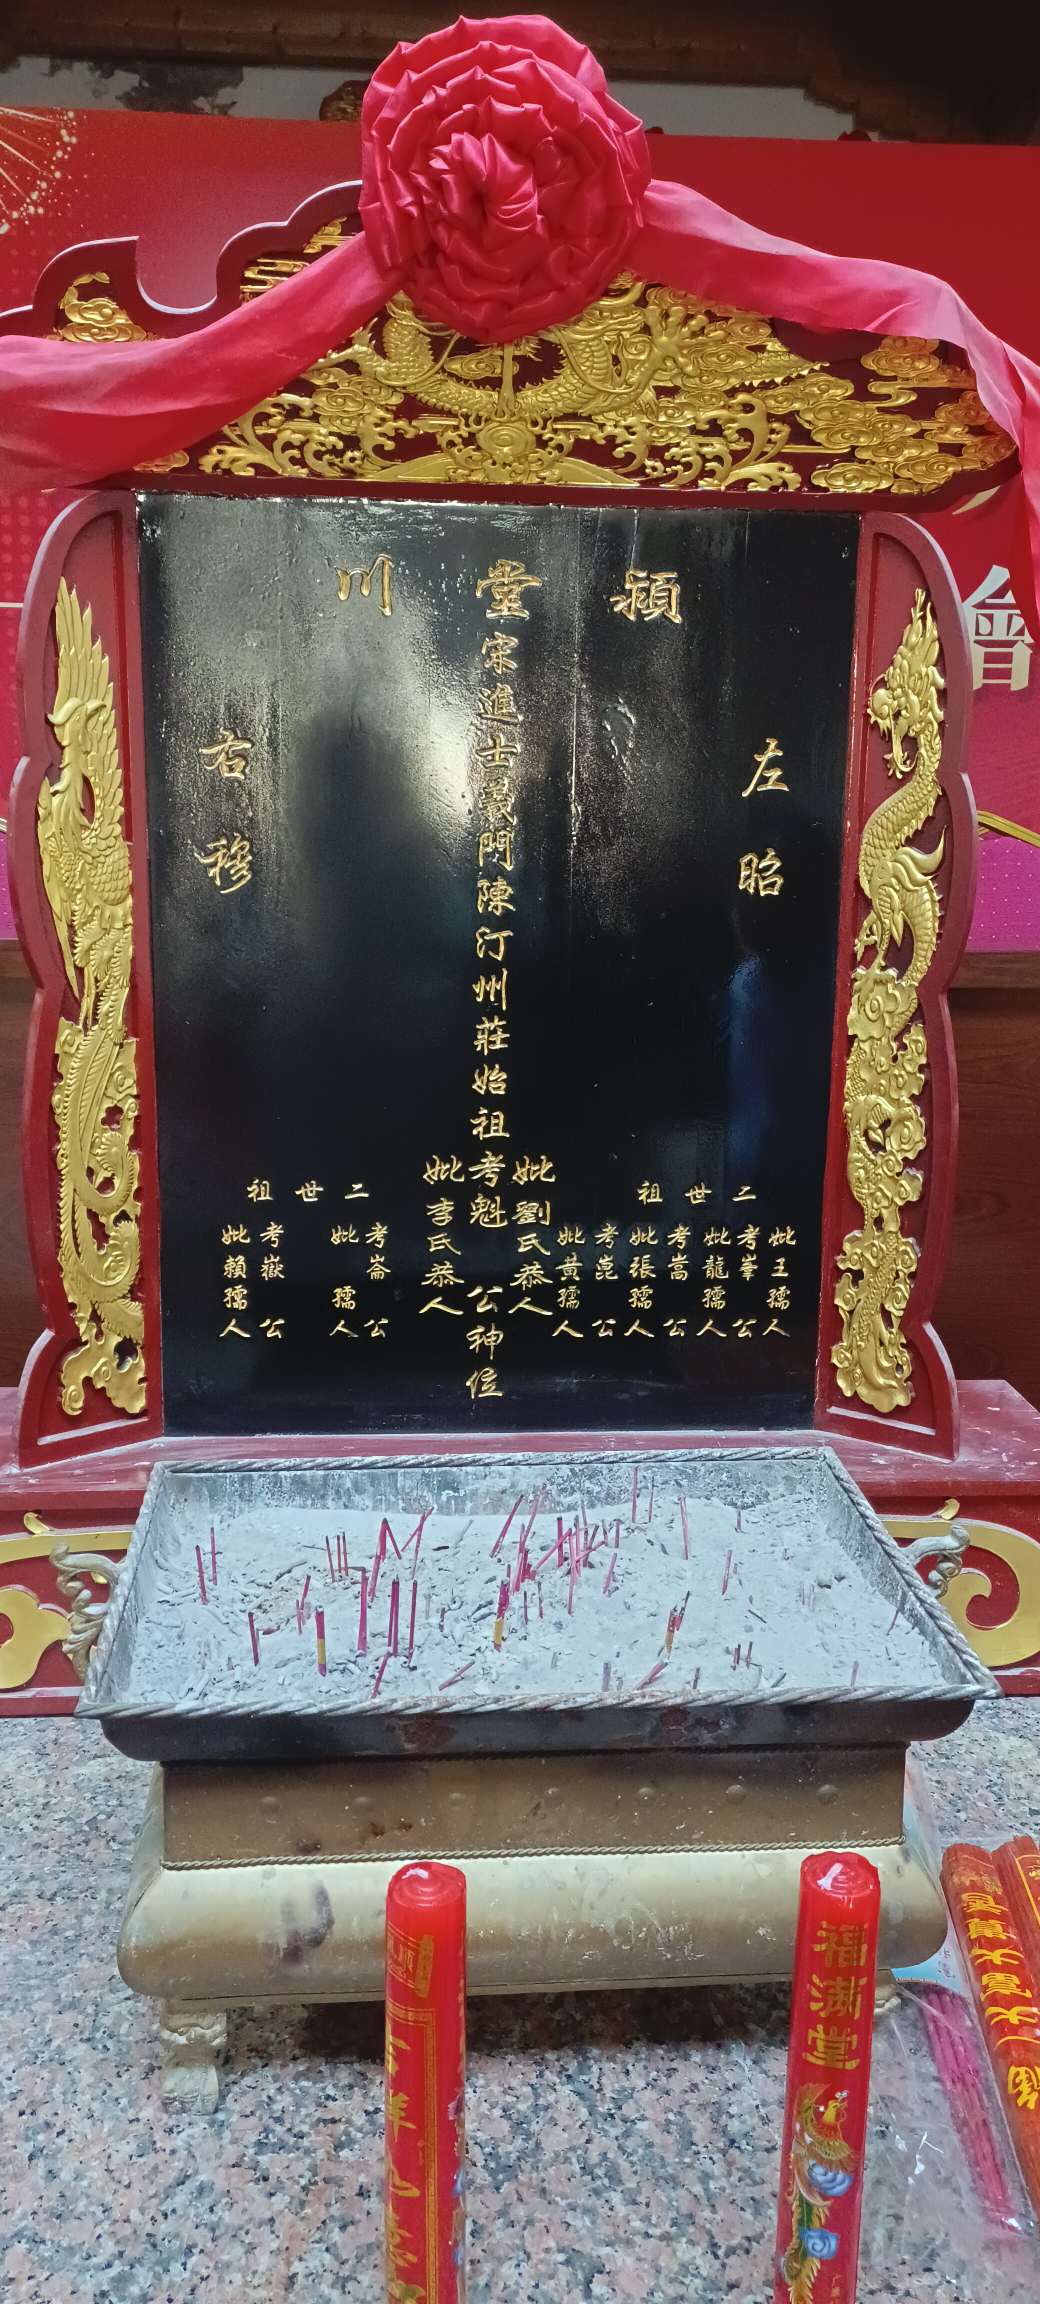 潁堂川
左昭
右穆
宋進士義門陳汀州莊始祖考魁公神位
妣劉氏恭人
妣李氏恭人
二世祖
妣王孺人
考峯公
妣龍孺人
考嵩公
妣張孺人
考崑公
妣黃孺人
二世祖
考崙公
妣孺人
考嶽公
妣賴孺人
會
福滿堂